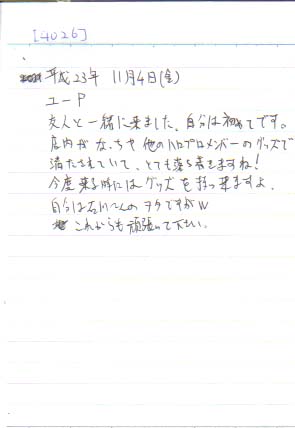 [4026]
平成23年 11月4日(金)
ユーP
友人と一緒に来ました。自分は初めてです。
店内がなっちや他のハロプロメンバーのグッズで
満たされていて、とても落ち着きますね!
今度来る時にはグッズを持って来ますよ。
自分は石川さんのヲタですがw
これからも頑張って下さい。